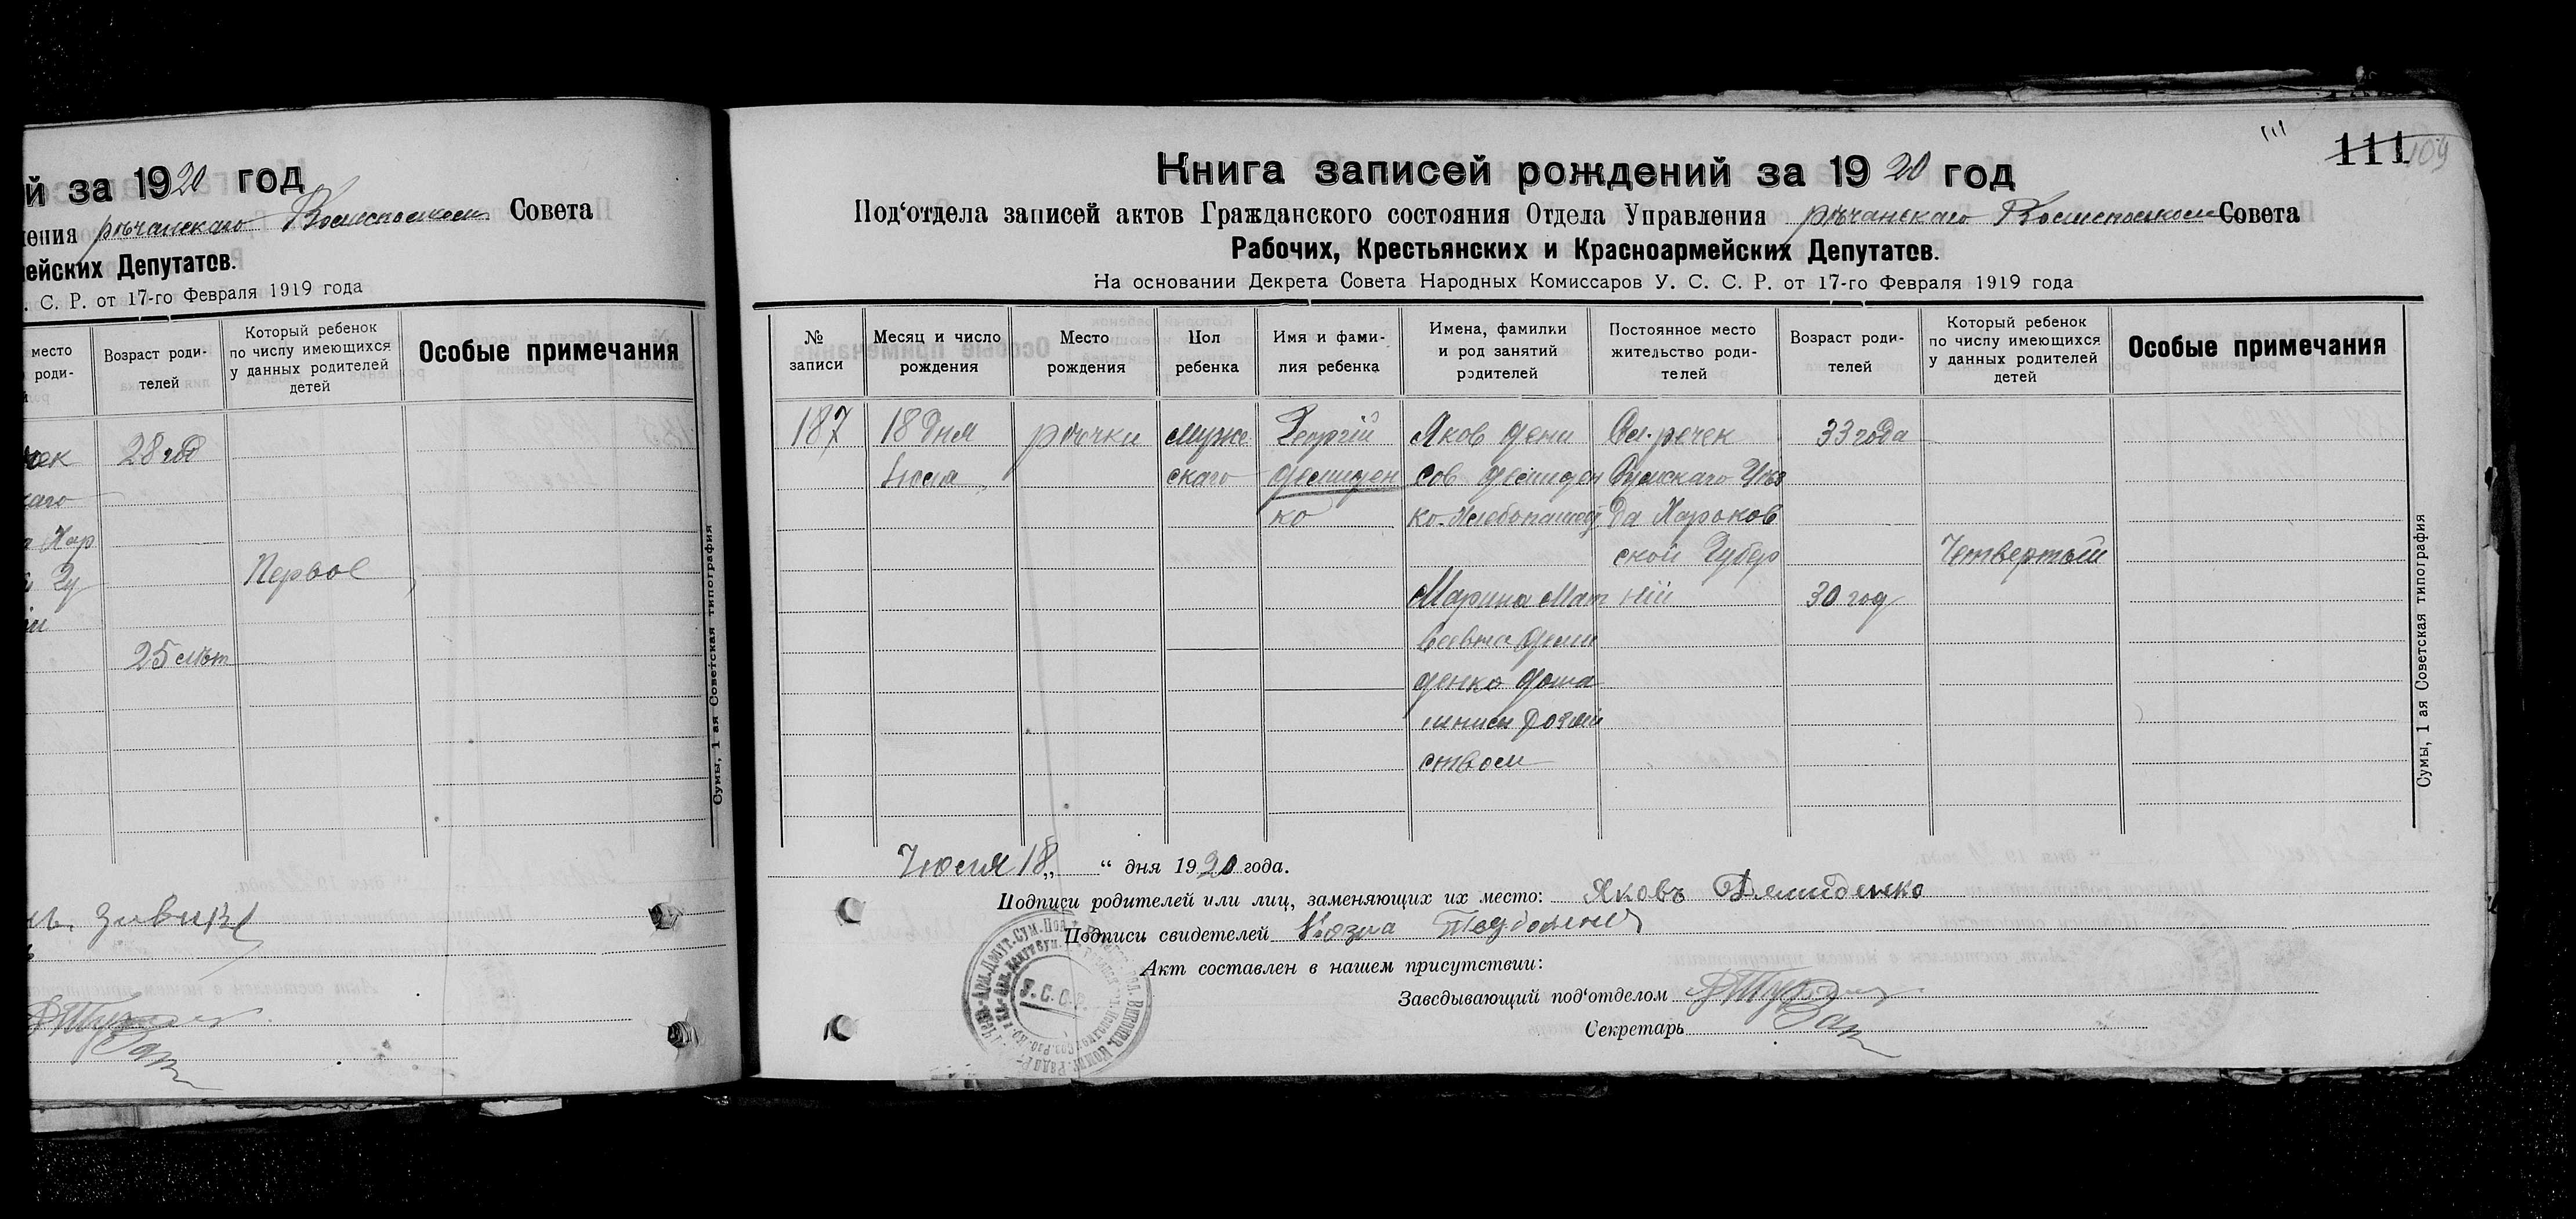 й за 1920 год
ления рѣчанскаго Волисполком Совета
ейских Депутатов.
. С. Р. от 17-го Февраля 1919 года
место
роди-
Возраст роди-
телей
Который ребенок
по числу имеющихся
у данных родителей
детей
Особые примечания
28 год
каго
Хар
Гу
Первое
25 лѣт
Сумы, 1 ая Советская типография
111 109
111
Книга записей рождений за 1920 год
Под‘отдела записей актов Гражданского состояния Отдела Управления рѣчанскаго Волисполком Совета
Рабочих, Крестьянских и Красноармейских Депутатов.
На основании Декрета Совета Народных Комиссаров У. С. С. Р. от 17-го Февраля 1919 года
№
записи
Месяц и число
рождения
Место
рождения
Пол
ребенка
Имя и фами-
лия ребенка
Имена, фамилии
и род занятий
родителей
Постоянное место
жительство роди-
телей
Возраст роди-
телей
Который ребенок
по числу имеющихся
у данных родителей
детей
Особые примечания
187 18 дня рѣчки мужe Георгій Яков Дени Сл. речек 33 года
Июля скаго Демиден сов Демиден Сумскаго Уѣз
ко ко. Хлебопашец да Харьков
ской Губер Четвертый
Марина Мат ніи 30 год
веевна Деми
денко Дома
шним Хозяй
ством
Июля 18 „ “ дня 1920 года.
Подписи родителей или лиц, заменяющих их место: Яковъ Демиденко
Подписи свидетелей Козма
Акт составлен в нашем присутствии:
Заведывающий под‘отделом
Секретарь
Сумы, 1 ая Советская типография